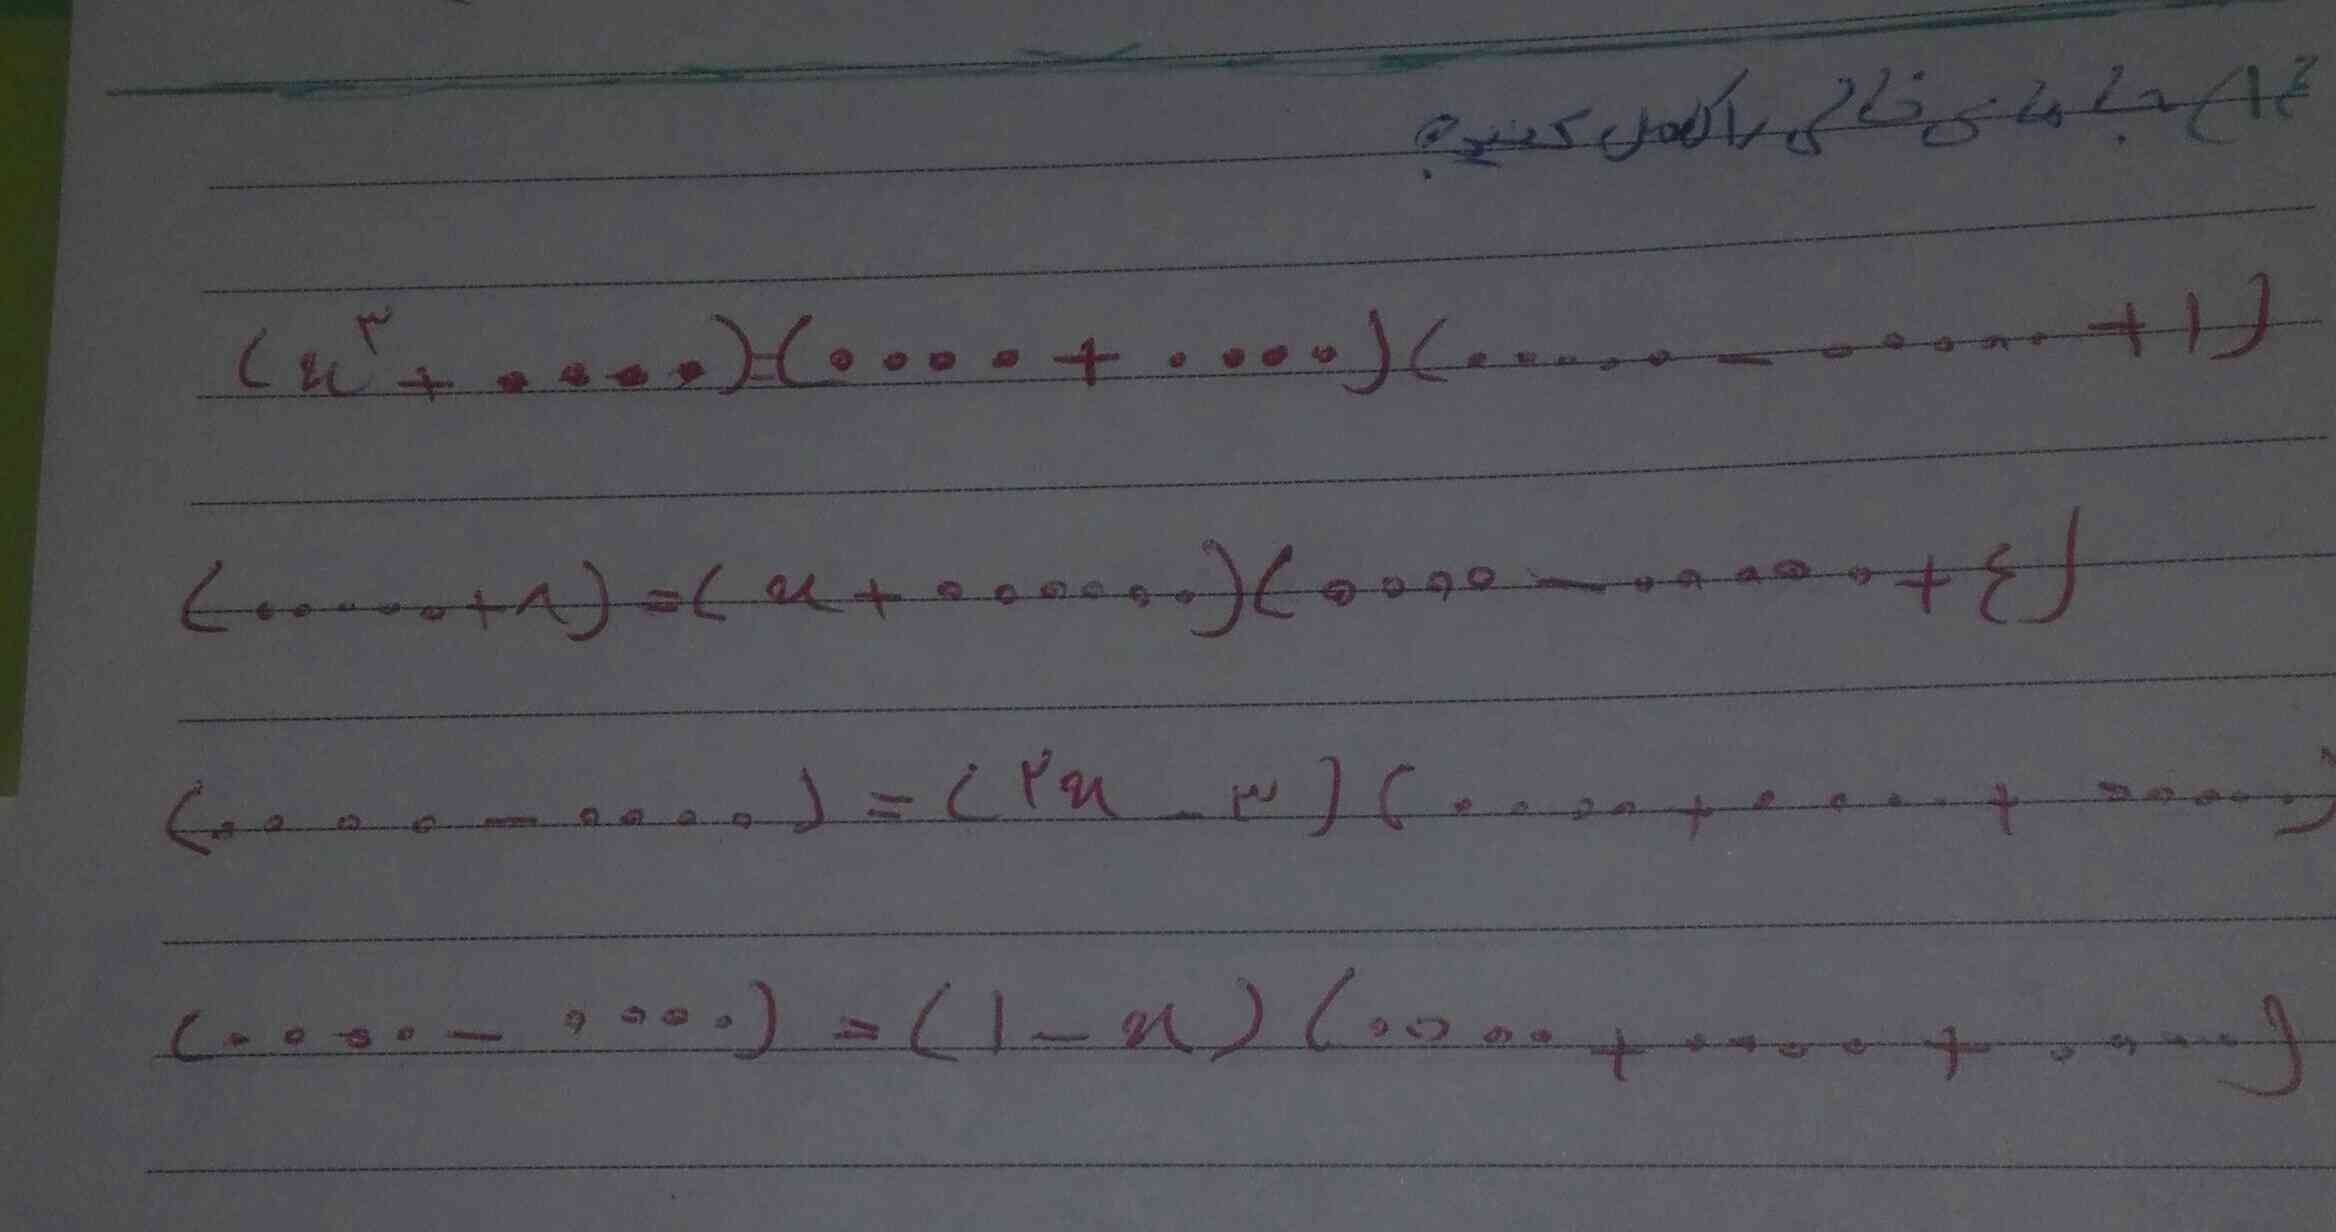 ۱۴) جاهای خالی را کامل کنید؟
(x³ + ....) = (.... + ....)(...... − ...... + ۱)
(..... + ۸) = (x + ......)(.... − ..... + ۴)
(.... − ....) = (۲x − ۳)(.... + .... + .....)
(.... − ....) = (۱ − x)(.... + .... + ....)